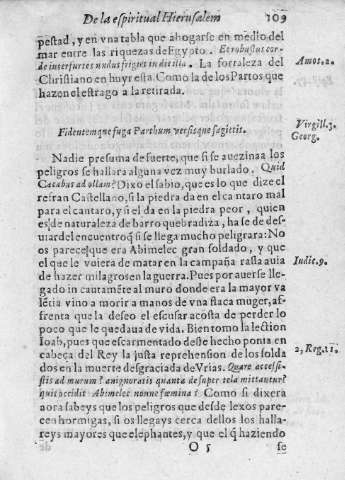 De la espiritual Hierusalem 109
pestad, y en vna tabla que ahogarse en medio del
mar entre las riquezas de Egypto. Et robustus cor-
de inter fortes nudus fugiet in die illa. La fortaleza del
Amos. 2.
Christiano en huyr esta. Como la de los Partos que
hazen el estrago a la retirada.
Fidentemque fuga Parthum versisque sagittis.
Virgil. 3.
Georg.
Nadie presuma de fuerte, que si se auezinaa los
peligros se hallara alguna vez muy burlado. Quid
Cacabus ad ollam? Dixo el sabio, que es lo que dize el
refran Castellano, si la piedra da en el cantaro mal
para el cantaro, y si el da en la piedra peor, quien
es de naturaleza de barro quebradiza, ha se de des-
uiar del encuentro q̃ si se llega mucho peligrara: No
os parece que era Abimelec gran soldado, y que
el que le viera de matar en la campaña rasta auia
Iudic. 9.
de hazer milagros en la guerra. Pues por auerse lle-
gado incautamẽte al muro donde era la mayor va
lẽtia vino a morir a manos de vna flaca muger, af-
frenta que la deseo el escusar acosta de perder lo
poco que le quedaua de vida. Bien tomo la lection
Ioab, pues que escarmentado deste hecho ponia en
cabeça del Rey la justa reprehension de los solda
2. Reg. 11.
dos en la muerte desgraciada de Vrias. Quare accessi-
stis ad murum? an ignoratis quanta desuper tela mittantur?
quis occidit Abimelec nonne fœmina? Como si dixera
aora sabeys que los peligros que desde lexos pare-
cen hormigas, si os llegays cerca dellos los halla-
reys mayores que elephantes, y que el q̃ haziendo
O 5 se